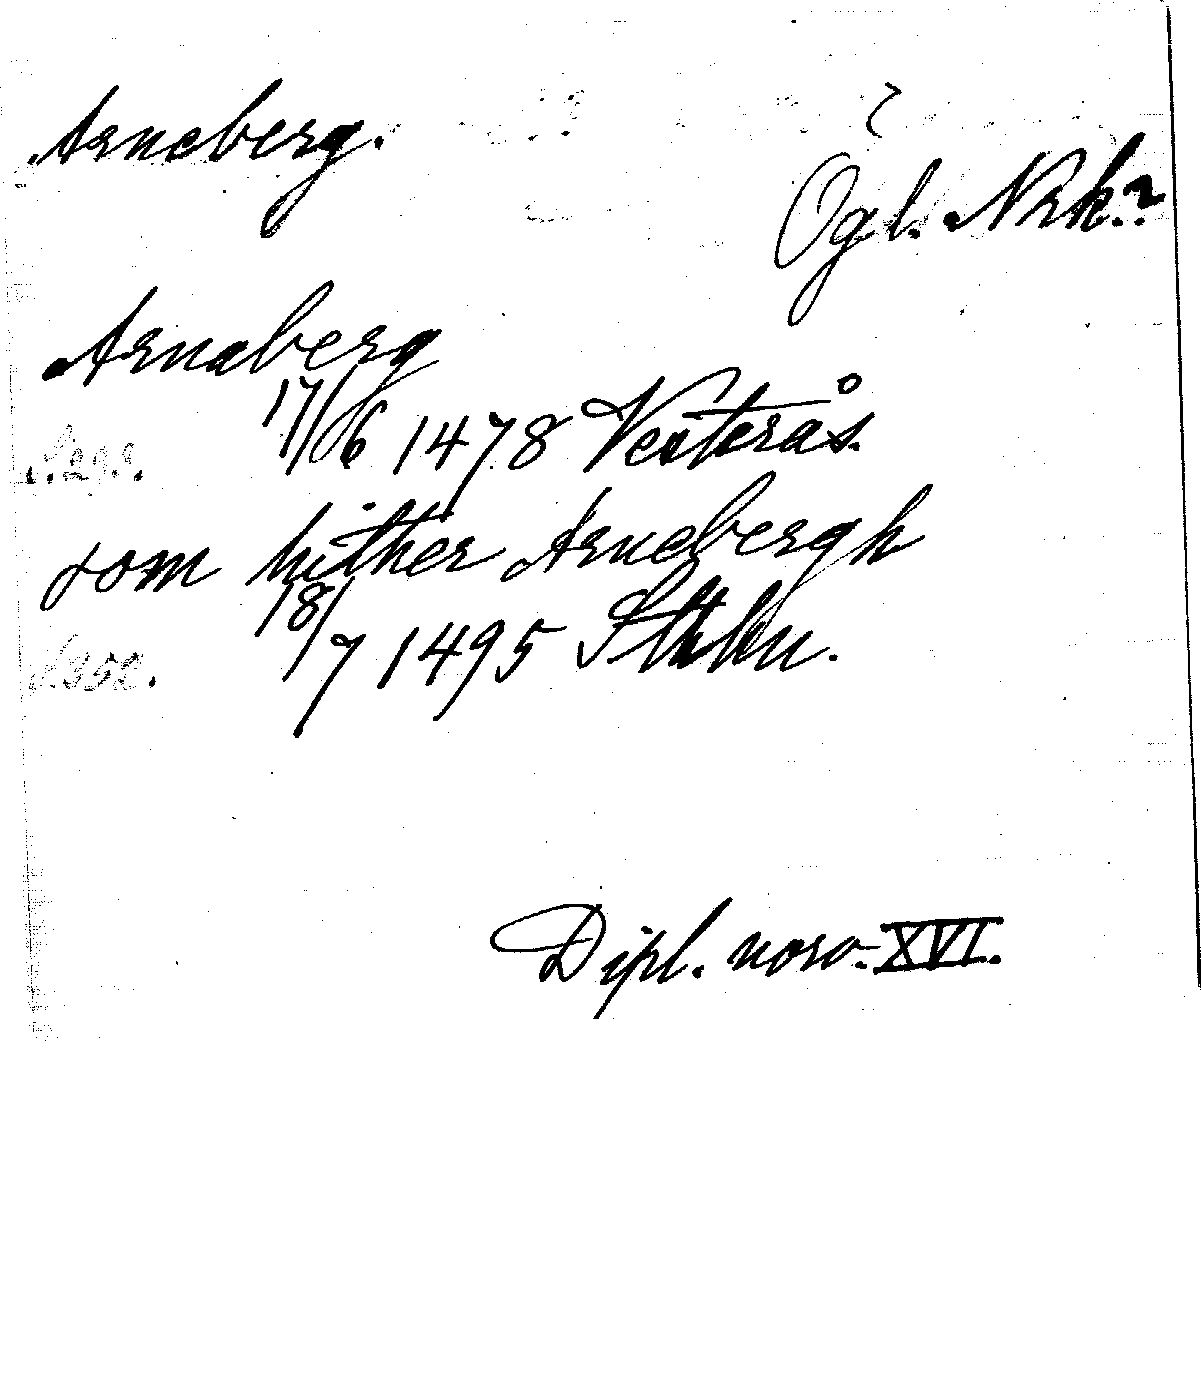 Arneberg.
Ögl. Nrk.?
Arneberg
17/6 1478 Vesterås.
som hither Arnebergh
s. 352.
18/7 1495 Sthlm.
Dipl. norv. XVI.